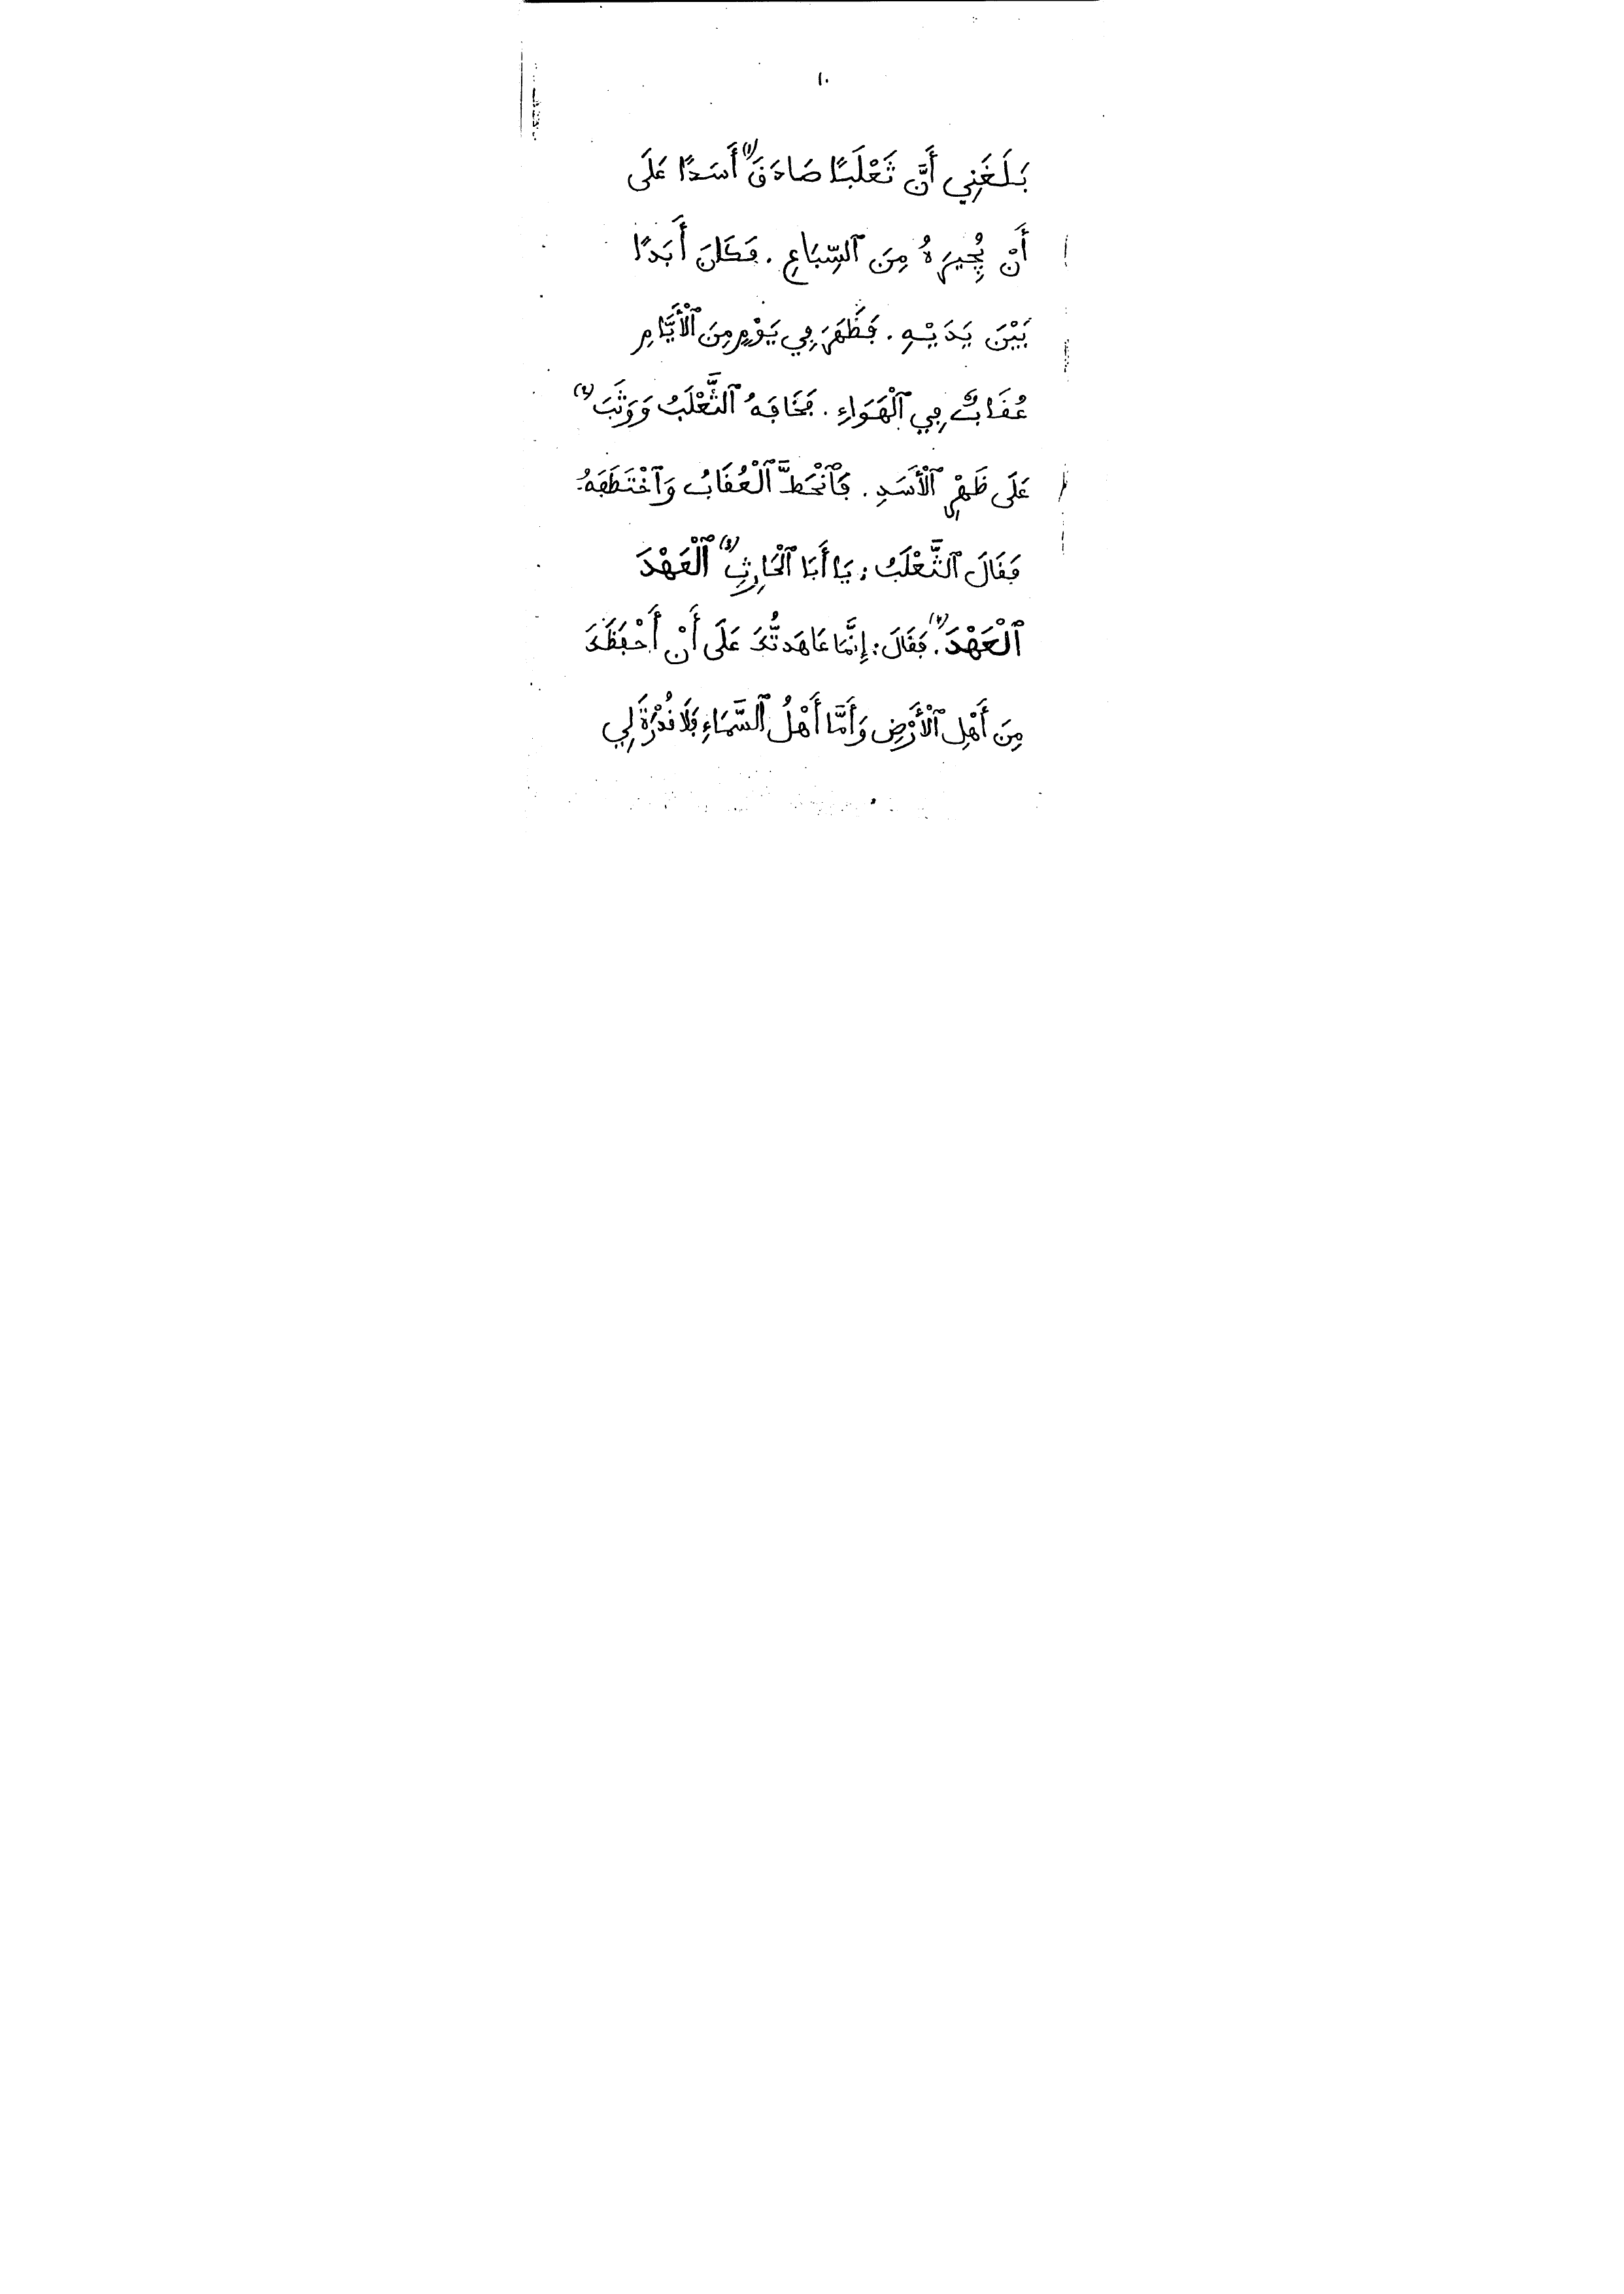 ١٠
بَلَغَنِي أَنَّ ثَعْلَبًا صَادَقَ (١) أَسَدًا عَلَى
أَنْ يُجِيرَهُ مِنَ ٱلسِّبَاعِ . فَكَانَ أَبَدًا
بَيْنَ يَدَيْهِ . فَظَهَرَ فِي يَوْمٍ مِنَ ٱلْأَيَّامِ
عُقَابٌ فِي ٱلْهَوَاءِ . فَخَافَهُ ٱلثَّعْلَبُ وَوَثَبَ (٢)
عَلَى ظَهْرِ ٱلْأَسَدِ . فَٱنْحَطَّ ٱلْعُقَابُ وَٱخْتَطَفَهُ .
فَقَالَ ٱلثَّعْلَبُ : يَا أَبَا ٱلْحَارِثِ (3) ٱلْعَهْدَ
ٱلْعَهْدَ (٢) . فَقَالَ : إِنَّمَا عَاهَدتُّكَ عَلَى أَنْ أَحْفَظَكَ
مِنَ أَهْلِ ٱلْأَرْضِ وَأَمَّا أَهْلُ ٱلسَّمَاءِ فَلَا قُدْرَةَ لِي